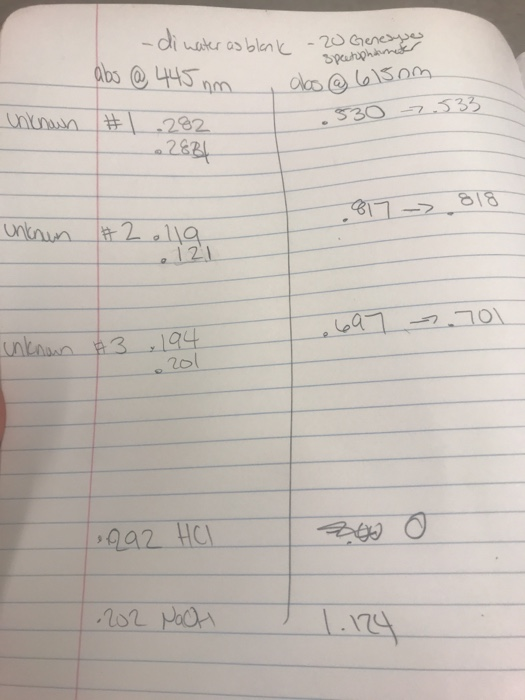 - di water as blank - 20 Genesys
spectrophotometer
abs @ 445 nm abs @ 615nm
Unknown #1 .282 .530 → .533
.283
.817 → .818
unknown #2 .119
.121
.697 → .701
unknown #3 .194
.201
HCl 0
.202 NaOH 1.174